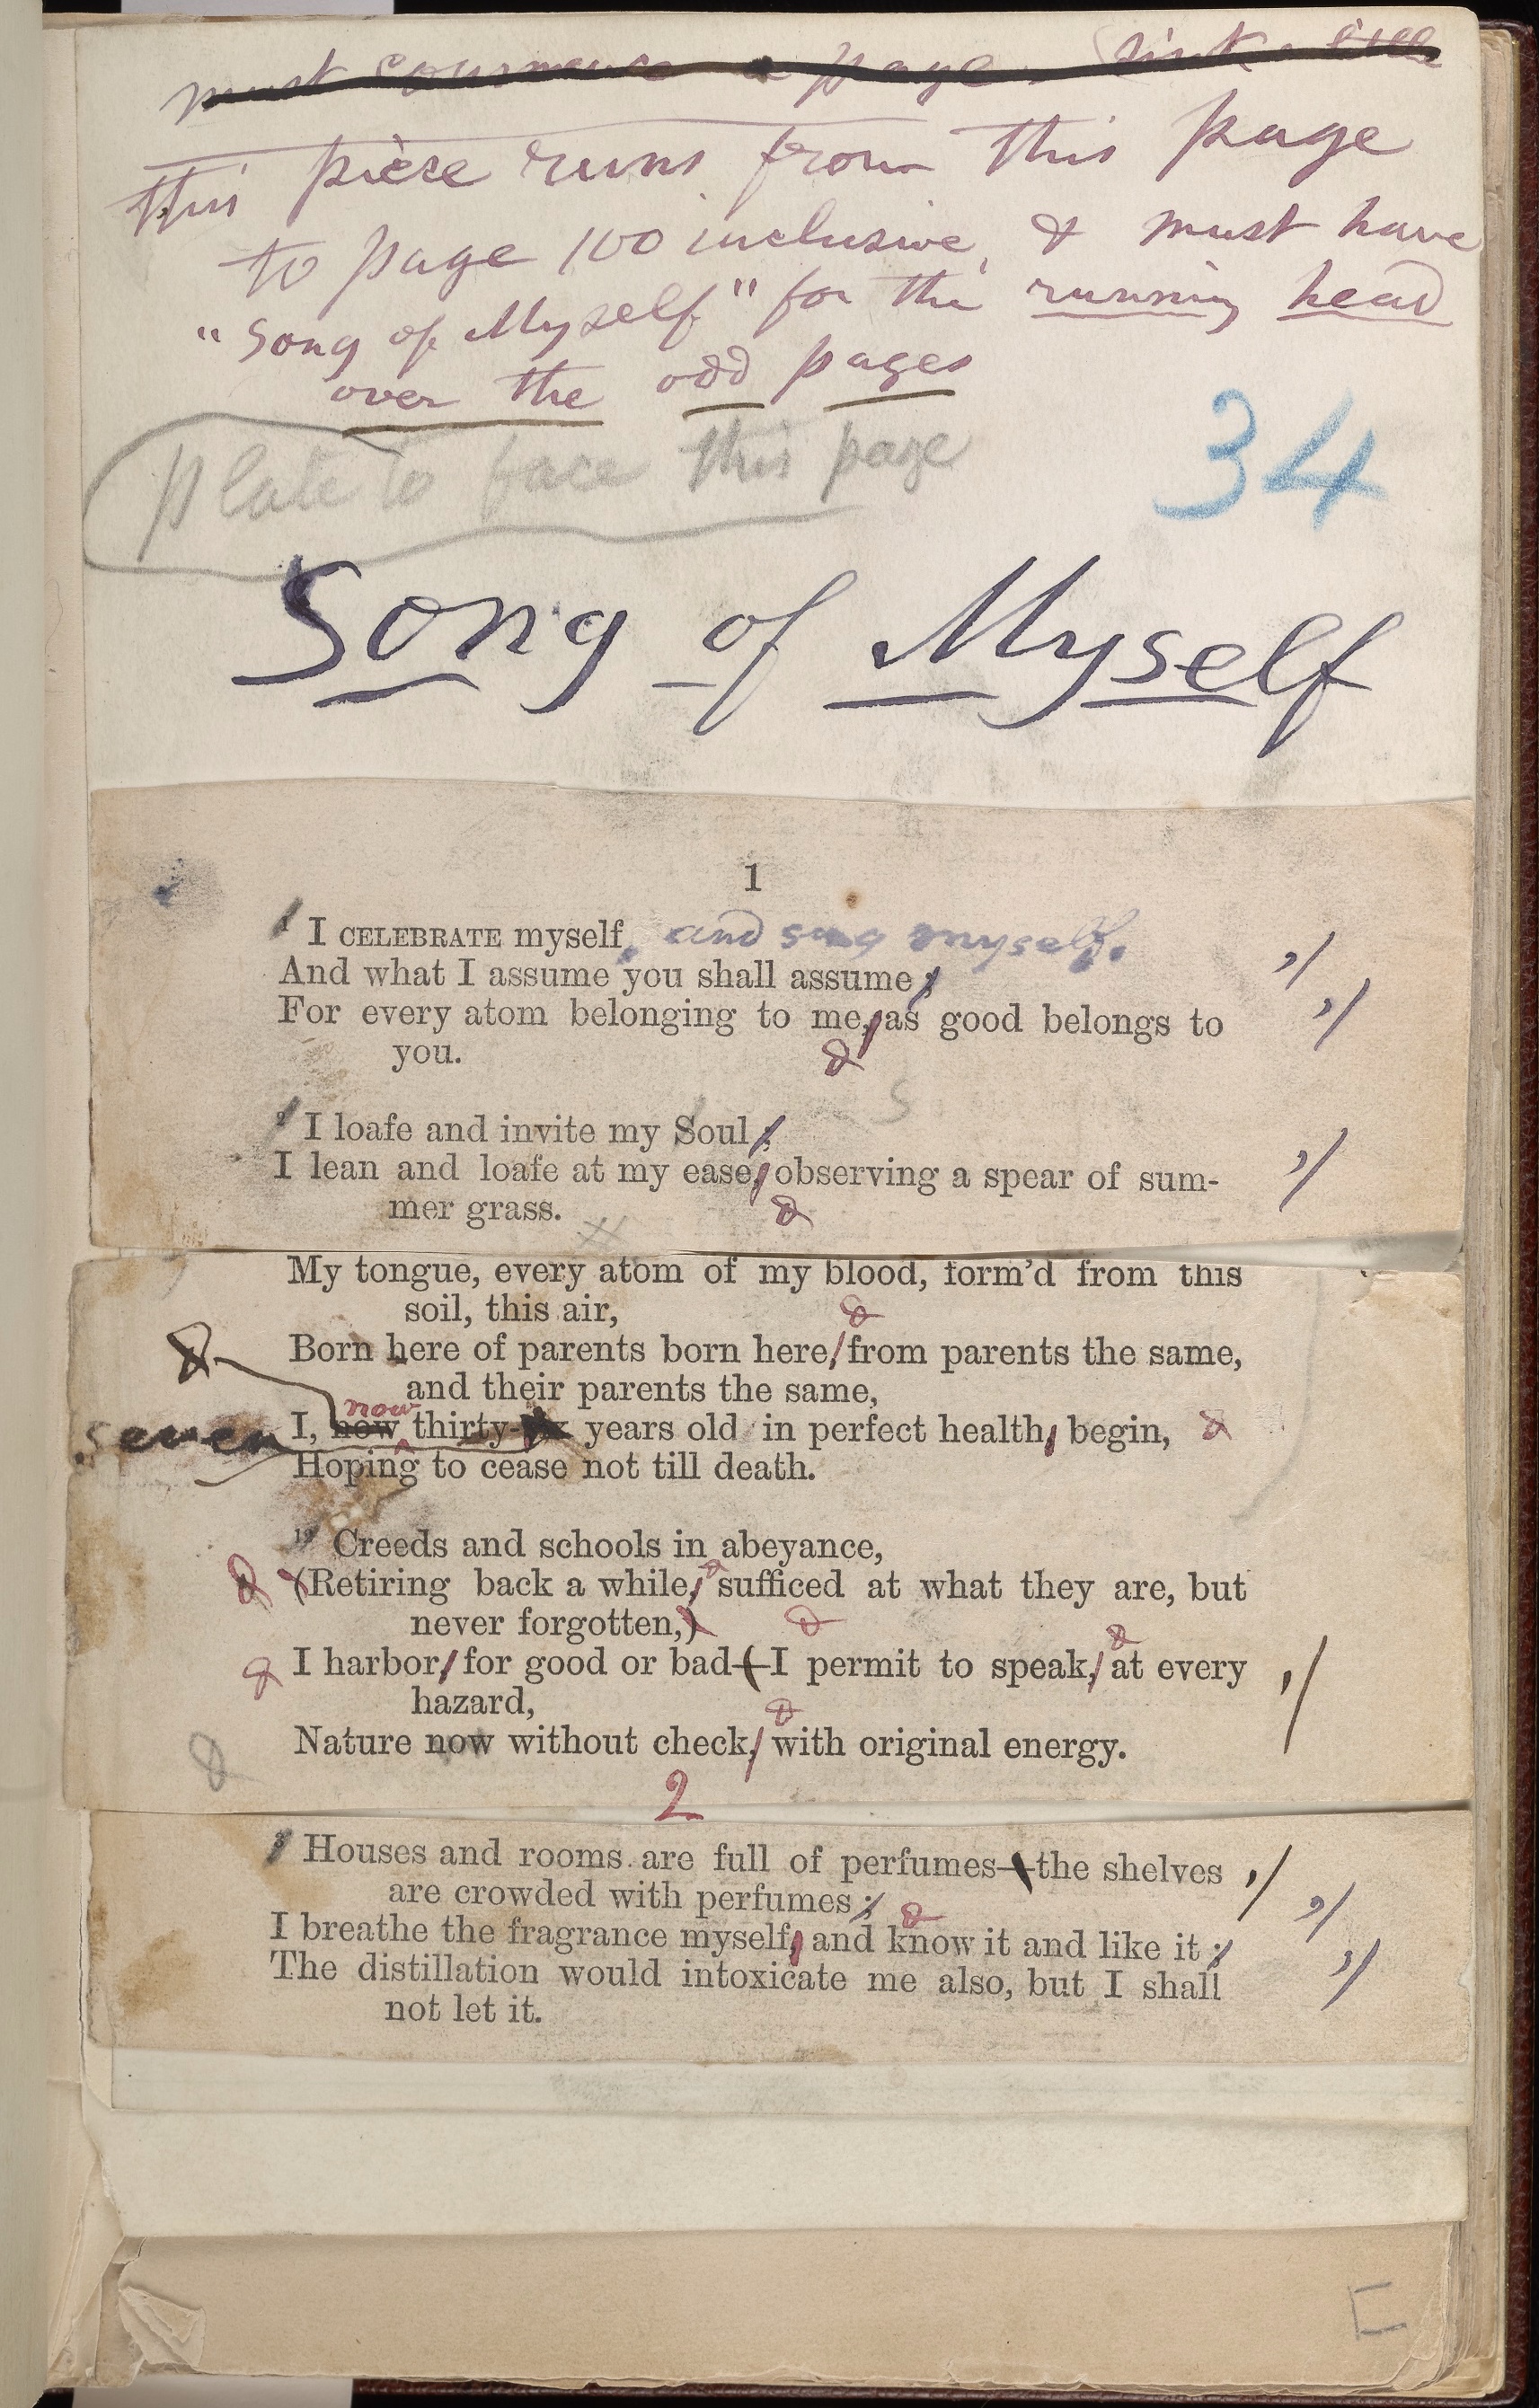 must commence a page. Sink a little
this piece runs from this page
to page 100 inclusive, & must have
"Song of Myself" for the running head
over the odd pages
Plate to face this page
34
Song of Myself
1
1 I CELEBRATE myself, and sing myself,
And what I assume you shall assume; ,/
For every atom belonging to me, as good belongs to ,/
you.
2 I loafe and invite my Soul; s
I lean and loafe at my ease, observing a spear of sum- ,/
mer grass.
My tongue, every atom of my blood, form'd from this
soil, this air,
Born here of parents born here, from parents the same,
and their parents the same,
now
seven I, now thirty-six years old in perfect health, begin,
Hoping to cease not till death.
19 Creeds and schools in abeyance,
(Retiring back a while, sufficed at what they are, but
never forgotten,)
I harbor, for good or bad—I permit to speak, at every ,/
hazard,
Nature now without check, with original energy.
2
3 Houses and rooms are full of perfumes—the shelves ,/
are crowded with perfumes; ,/
I breathe the fragrance myself, and know it and like it; ,/
The distillation would intoxicate me also, but I shall
not let it.